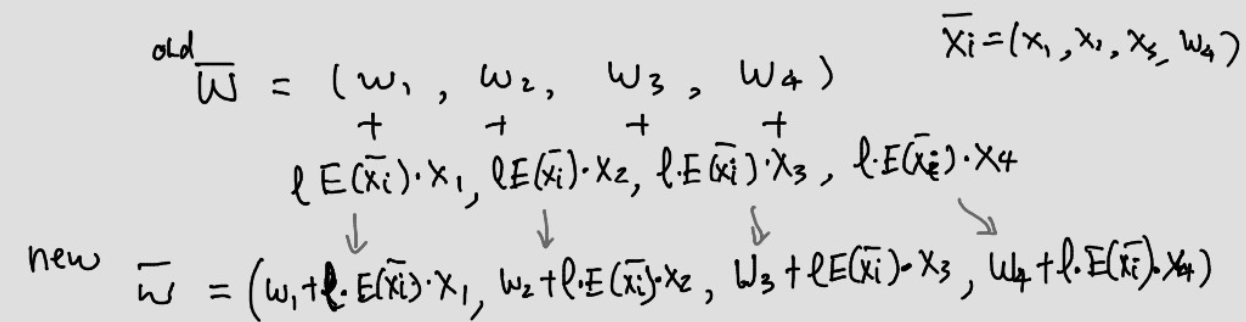 old W̅ = (w₁, w₂, w₃, w₄) x̅i = (x₁, x₂, x₃, w₄)
+ + + +
l E(x̅i)·x₁, lE(x̅i)·x₂, l·E(x̅i)·x₃, l·E(x̅i)·x₄
↓ ↓ ↓ ↘
new w̅ = (w₁+l·E(x̅i)·x₁, w₂+l·E(x̅i)·x₂, w₃+lE(x̅i)·x₃, w₄+l·E(x̅i)·x₄)